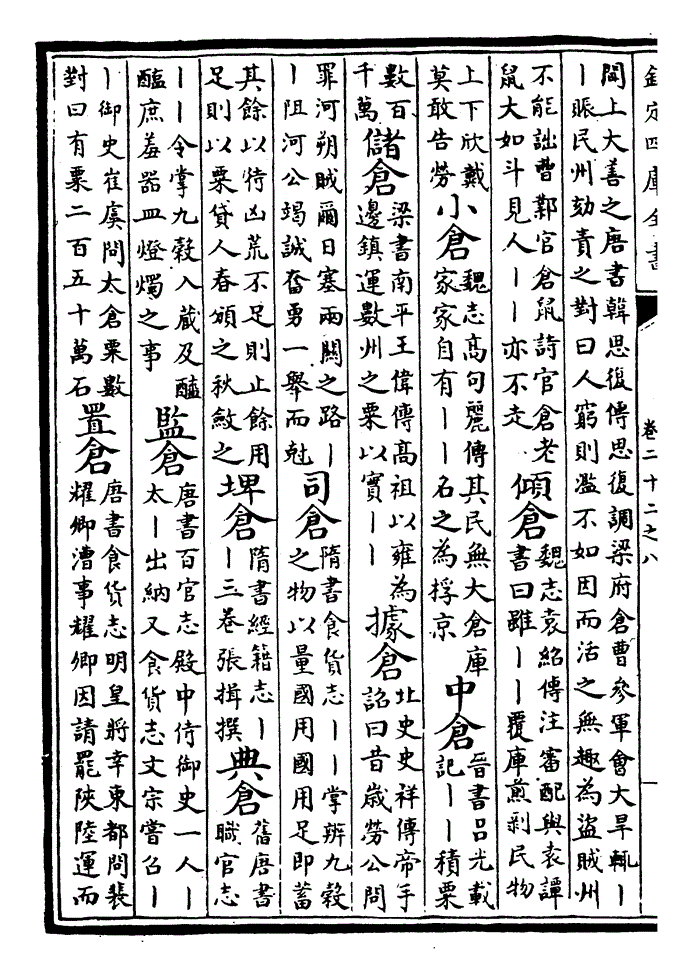 欽定四庫全書
卷二十二之八
閭上大善之唐書韓思復傳思復調梁府倉曹參軍會大旱輒丨
丨賑民州劾責之對曰人窮則濫不如因而活之無趣為盜賊州
不能詘曹鄴官倉鼠詩官倉老
鼠大如斗見人丨丨亦不走
傾倉
魏志袁紹傳注審配與袁譚
書曰雖丨丨覆庫煎剥民物
上下欣戴
莫敢告勞
小倉
魏志高句麗傳其民無大倉庫
家家自有丨丨名之為桴京
中倉
晉書吕光載
記丨丨積粟
數百
千萬
儲倉
梁書南平王偉傳高祖以雍為
邊鎮運數州之粟以實丨丨
據倉
北史史祥傳帝手
詔曰昔歲勞公問
罪河朔賊爾日塞兩關之路丨
丨阻河公竭誠奮勇一舉而尅
司倉
隋書食貨志丨丨掌辨九穀
之物以量國用國用足即蓄
其餘以待凶荒不足則止餘用
足則以粟貸人春頒之秋斂之
埤倉
隋書經籍志丨
丨三卷張揖撰
典倉
舊唐書
職官志
丨丨令掌九穀入藏及醯
醢庶羞器皿燈燭之事
監倉
唐書百官志殿中侍御史一人丨
太丨出納又食貨志文宗嘗召丨
丨御史崔虞問太倉粟數
對曰有粟二百五十萬石
置倉
唐書食貨志明皇將幸東都問裴
耀卿漕事耀卿因請罷陝陸運而